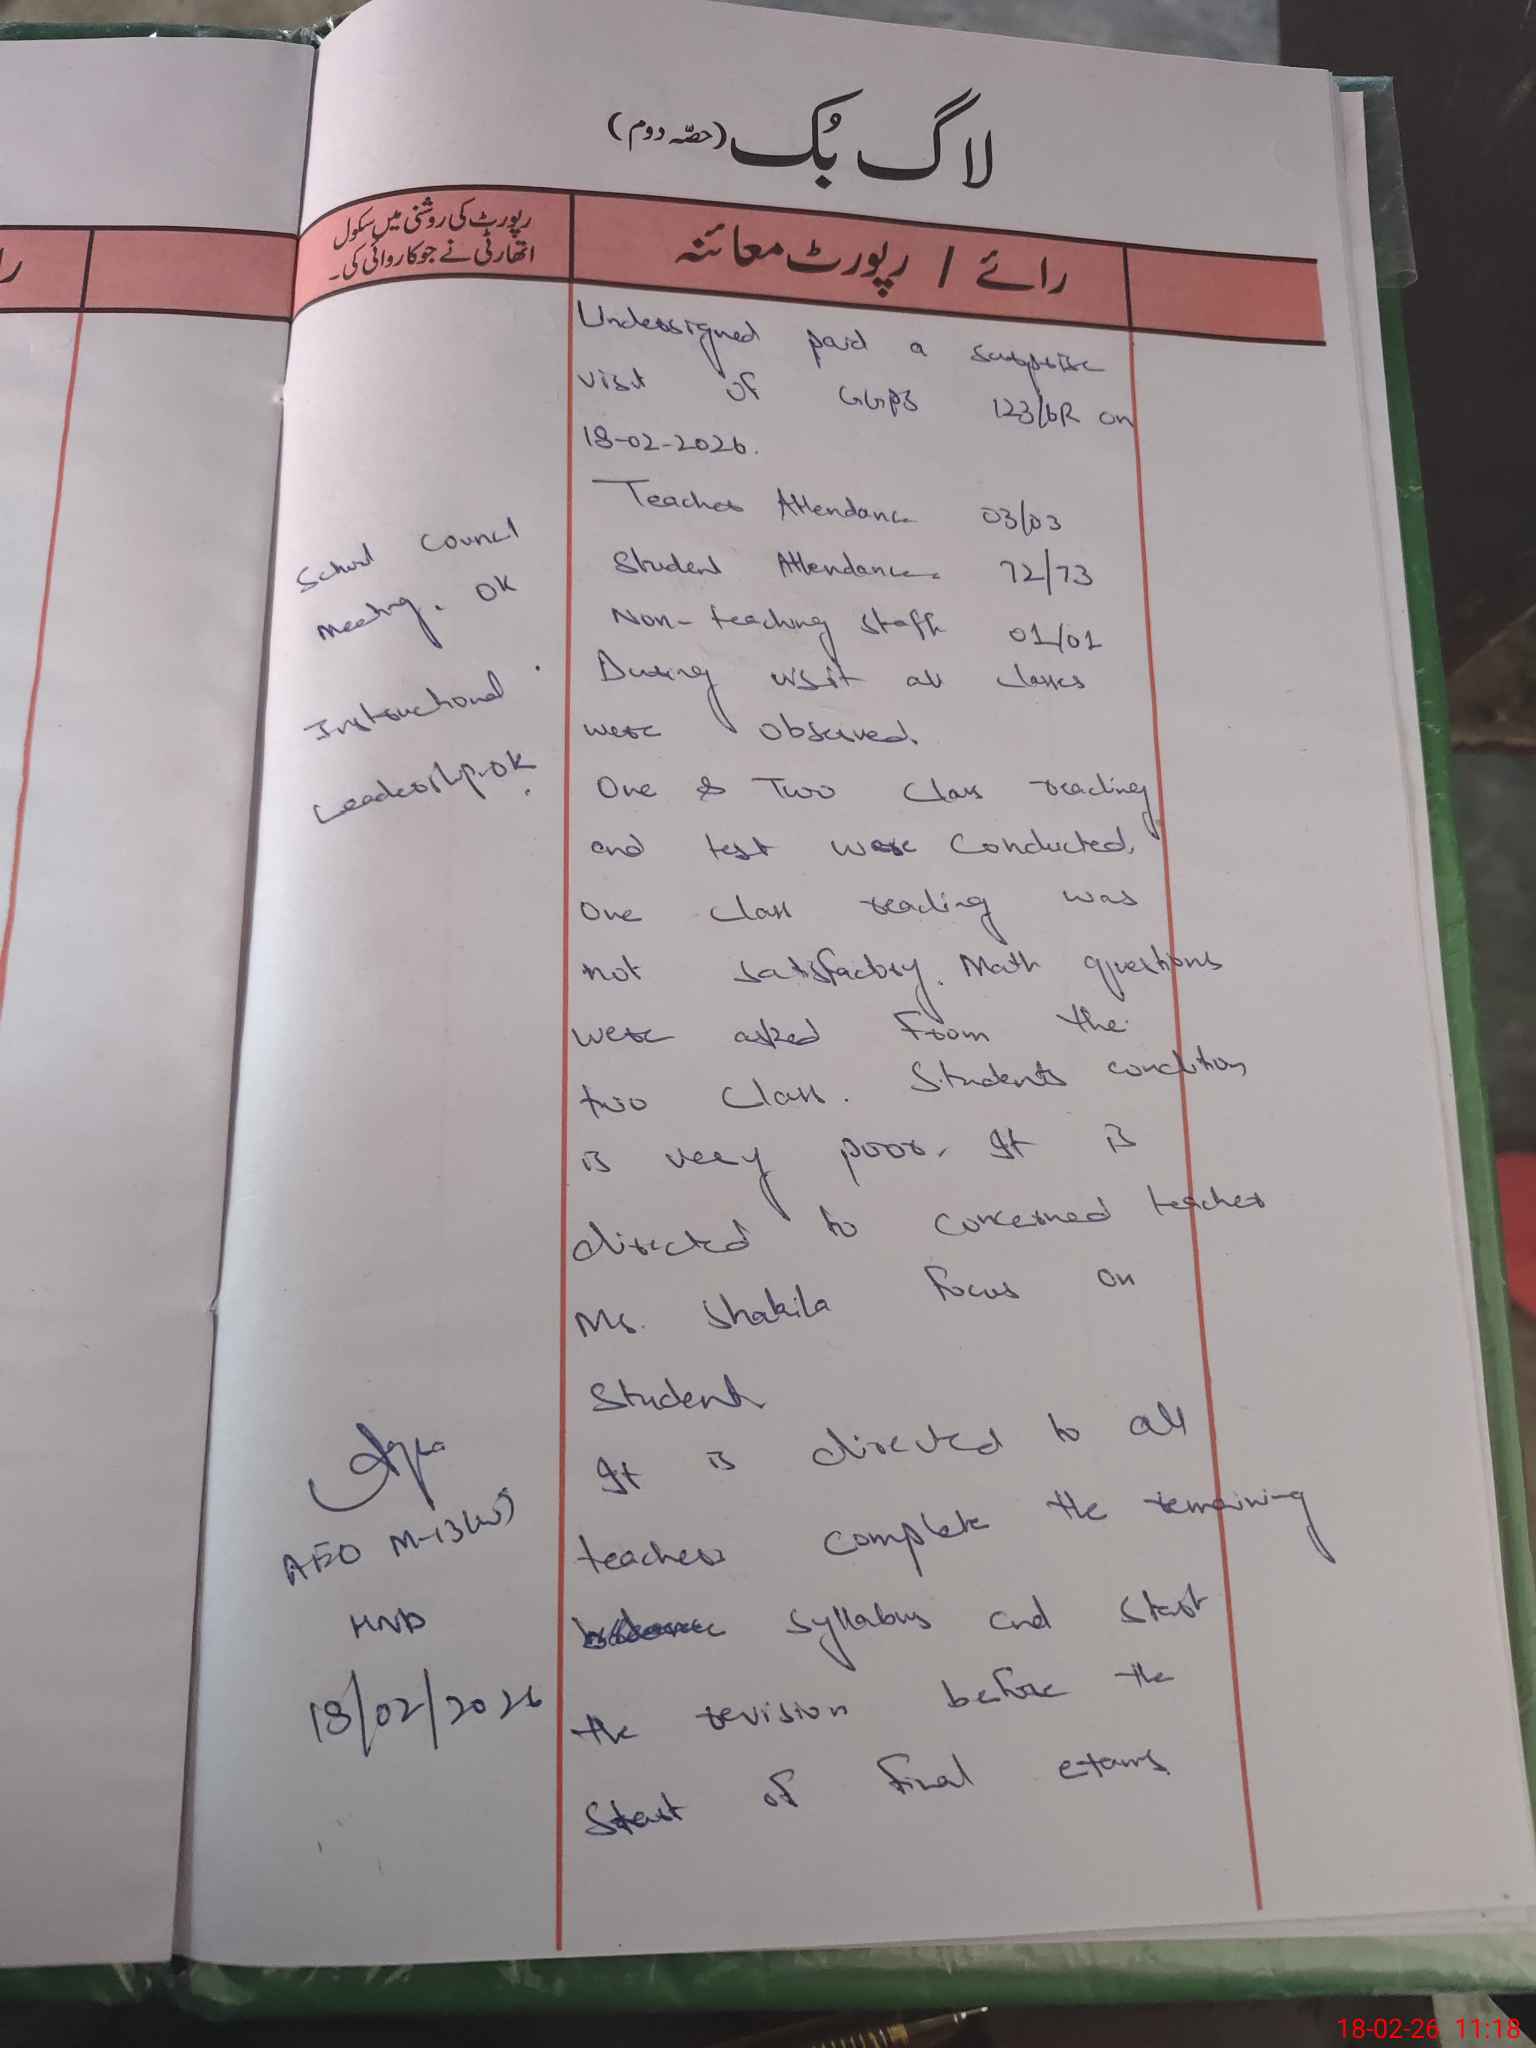 لاگ بُک (حصّہ دوم)
رپورٹ کی روشنی میں سکول
اتھارٹی نے جو کاروائی کی۔
رائے / رپورٹ معائنہ
Undersigned paid a surprise
visit of GGPS 123/6R on
18-02-2026.
Teacher Attendance 03/03
Student Attendance 72/73
Non-teaching staff 01/01
During visit all classes
were observed.
One & Two Class reading
and test were Conducted.
One class reading was
not satisfactory. Math questions
were asked from the
two class. Students condition
is very poor. It is
directed to concerned teacher
Ms. Shakila focus on
Student
It is directed to all
teachers complete the remaining
syllabus and start
the revision before the
start of final exams.
School Council
Meeting. OK
Instructional
Leadership. OK
AEO M-13(W)
HND
18/02/2026
18-02-26 11:18